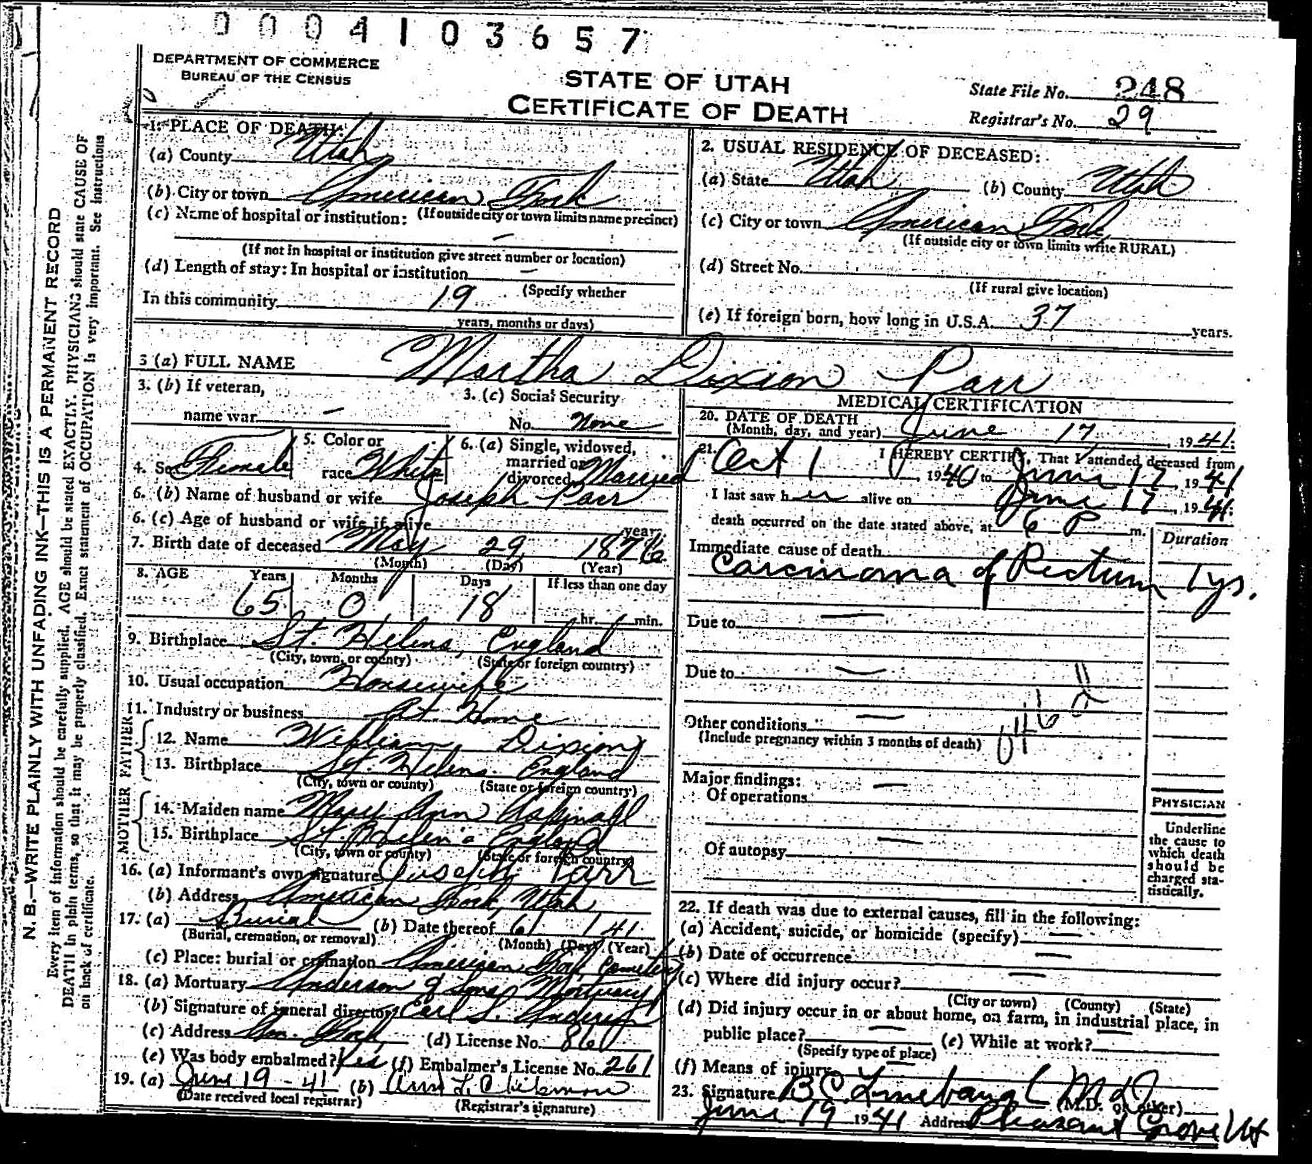 0004103657
DEPARTMENT OF COMMERCE
BUREAU OF THE CENSUS
STATE OF UTAH
CERTIFICATE OF DEATH
State File No. 248
Registrar's No. 29
1. PLACE OF DEATH:
(a) County Utah
(b) City or town American Fork
(c) Name of hospital or institution: (If outside city or town limits name precinct)
(If not in hospital or institution give street number or location)
(d) Length of stay: In hospital or institution —
(Specify whether
In this community 19
years, months or days)
2. USUAL RESIDENCE OF DECEASED:
(a) State Utah (b) County Utah
(c) City or town American Fork
(If outside city or town limits write RURAL)
(d) Street No.
(If rural give location)
(e) If foreign born, how long in U.S.A. 37 years.
3 (a) FULL NAME Martha Dixion Parr
3. (b) If veteran,
name war —
3. (c) Social Security
No. None
4. Sex Female
5. Color or
race White
6. (a) Single, widowed,
married or
divorced Married
6. (b) Name of husband or wife Joseph Parr
6. (c) Age of husband or wife if alive years
7. Birth date of deceased May 29 1876
(Month) (Day) (Year)
8. AGE Years Months Days If less than one day
65 0 18 hr. min.
9. Birthplace St. Helens, England
(City, town, or county) (State or foreign country)
10. Usual occupation Housewife
11. Industry or business At Home
FATHER
12. Name William Dixion
13. Birthplace St. Helens England
(City, town or county) (State or foreign country)
MOTHER
14. Maiden name Mary Ann Aspinall
15. Birthplace St. Helen's England
(City, town or county) (State or foreign country)
16. (a) Informant's own signature Joseph Parr
(b) Address American Fork, Utah
17. (a) Burial (b) Date thereof 6/ /41
(Burial, cremation, or removal) (Month) (Day) (Year)
(c) Place: burial or cremation American Fork Cemetery
18. (a) Mortuary Anderson & Sons Mortuary
(b) Signature of funeral director Earl S. Anderson
(c) Address Am. Fork (d) License No. 860
(e) Was body embalmed? Yes (f) Embalmer's License No. 261
19. (a) June 19-41 (b)
(Date received local registrar) (Registrar's signature)
MEDICAL CERTIFICATION
20. DATE OF DEATH
(Month, day, and year) June 17, 1941
21. I HEREBY CERTIFY, That I attended deceased from
Oct 1 1940 to June 17, 1941
I last saw her alive on June 17, 1941;
death occurred on the date stated above, at 6 P m.
Duration
Immediate cause of death
Carcinoma of Rectum 1 yr.
Due to —
Due to —
Other conditions —
(Include pregnancy within 3 months of death)
Major findings: —
Of operations
Of autopsy —
PHYSICIAN
Underline
the cause to
which death
should be
charged sta-
tistically.
22. If death was due to external causes, fill in the following:
(a) Accident, suicide, or homicide (specify) —
(b) Date of occurrence —
(c) Where did injury occur? —
(City or town) (County) (State)
(d) Did injury occur in or about home, on farm, in industrial place, in
public place? — (e) While at work? —
(Specify type of place)
(f) Means of injury
23. Signature B.C. Linebaugh (M.D.
(M.D. or other)
June 19 1941 Address Pleasant Grove Ut
N. B.—WRITE PLAINLY WITH UNFADING INK—THIS IS A PERMANENT RECORD
Every item of information should be carefully supplied. AGE should be stated EXACTLY. PHYSICIANS should state CAUSE OF
DEATH in plain terms, so that it may be properly classified. Exact statement of OCCUPATION is very important. See instructions
on back of certificate.